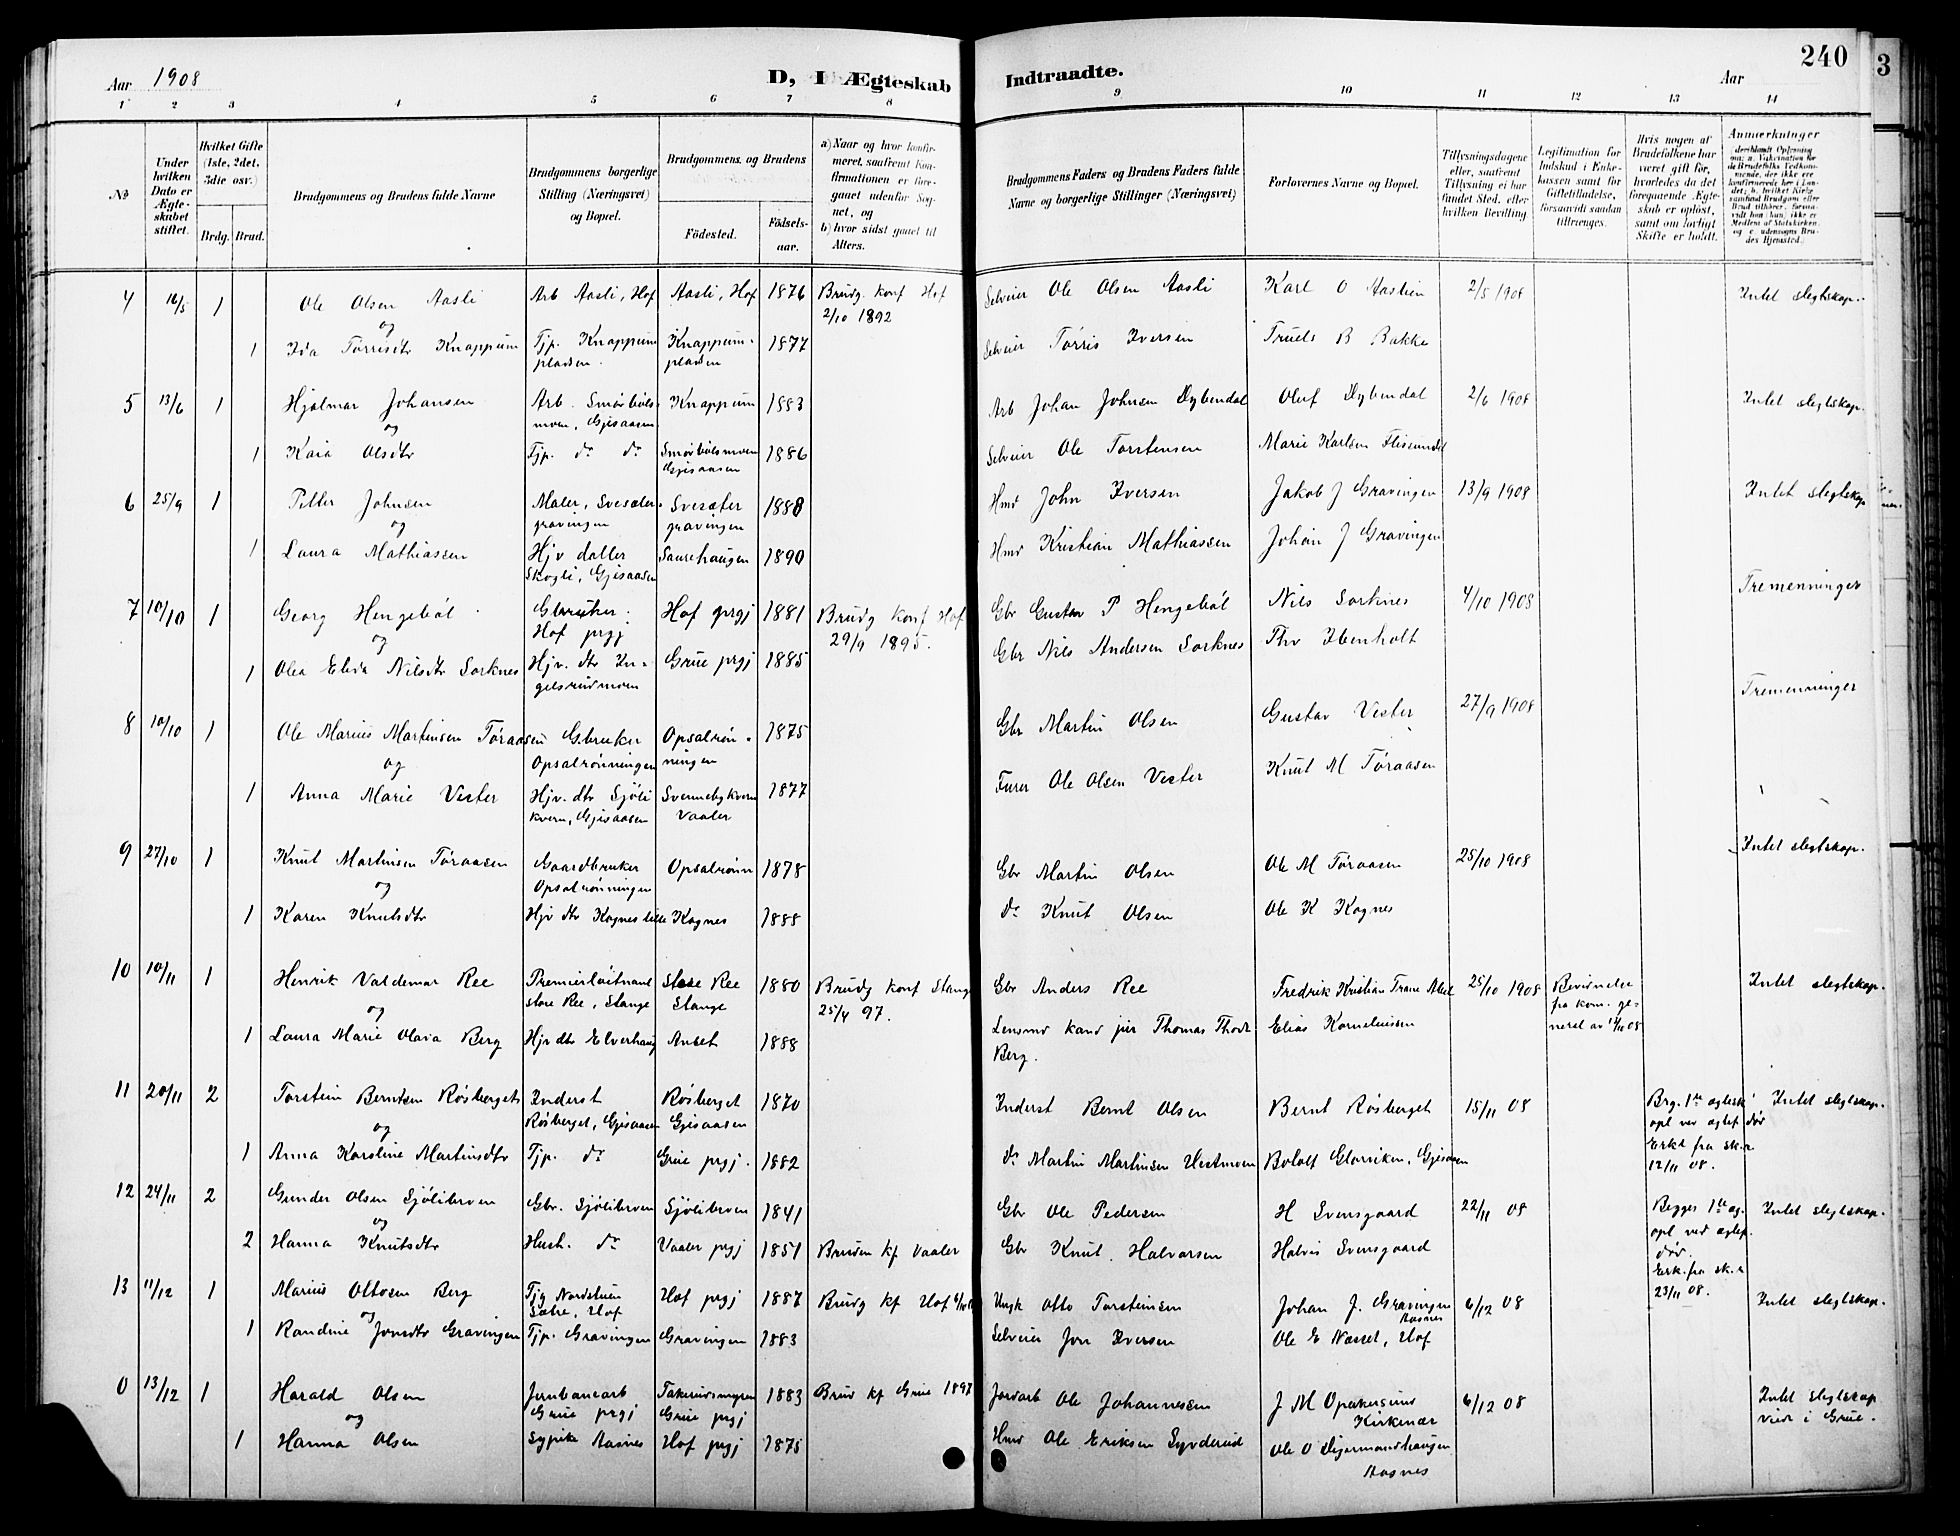 240
3
Aar 1908
D, I Ægteskab
Indtraadte.
Aar
1 2 3 4 5 6 7 8 9 10 11 12 13 14
No
Under hvilken Dato er Ægteskabet stiftet.
Hvilket Gifte (1ste, 2det, 3die osv.)
Brdg. Brud.
Brudgommens og Brudens fulde Navne
Brudgommens borgerlige Stilling (Næringsvei) og Bopæl.
Brudgommens og Brudens
Fødested.
Fødselsaar.
a) Naar og hvor konfirmeret, saafremt Konfirmationen er foregaaet udenfor Sognet, og
b) hvor sidst gaaet til Alters.
Brudgommens Faders og Brudens Faders fulde Navne og borgerlige Stillinger (Næringsvei)
Forlovernes Navne og Bopæl.
Tillysningsdagene eller, saafremt Tillysning ei har fundet Sted, efter hvilken Bevilling
Legitimation for Indskud i Enkekassen samt for Giftetilladelse, forsaavidt saadan tiltrænges.
Hvis nogen af Brudefolkene har været gift før, hvorledes da det foregaaende Ægteskab er opløst, samt om lovligt Skifte er holdt.
Anmærkninger
4 16/5 1 Ole Olsen Aasli Arb Aasli, Hof Aasli, Hof 1876 Brudg. konf Hof 2/10 1892 Selveier Ole Olsen Aasli Karl O Aaslien 2/5 1908 Intet slegtskap.
og
1 Ida Torrisdtr Knappum Tjp. Knappum pladsen. Knappumpladsen 1877 Selveier Torris Iversen Truels B Bakke
5 13/6 1 Hjalmar Johansen Arb. Smørbølsmoen, Gjesaasen Knappum 1883 Arb Johan Johnsen Dybendal Oluf Dybendal 2/6 1908 Intet slegtskap.
og
1 Kaia Olsdtr Tjp. do do Smørbølsmoen Gjesaasen 1886 Selveier Ole Torstensen Marie Karlsen Flisundet
6 25/9 1 Petter Johnsen Maler, Svesætergravingen Svesætergravingen 1888 Hmd John Iversen Jakob J Gravingen 13/9 1908 Intet slegtskap
og
1 Laura Mathiassen Hjv datter Skogli, Gjesaasen Saurehaugen 1890 Hmd Kristian Mathiassen Johan J Gravingen
7 10/10 1 Georg Hengebøl Gbruker. Hof prgj Hof prgj 1881 Brudg konf Hof 29/9 1895. Gbr Gustav P Hengebøl Nils Sorknes 4/10 1908 Tremenninger
og
1 Olea Elida Nilsdtr Sorknes Hjv. dtr Ingelsrudmoen Grue prgj 1885 Gbr Nils Andersen Sorknes Thv Ibenholt
8 10/10 1 Ole Marius Martinsen Toraasen Gbruker Opsalrønningen Opsalrønningen 1875 Gbr Martin Olsen Gustav Vester 27/9 1908 Tremenninger
og
1 Anna Marie Vester Hjv. dtr Sjøli kvern, Gjesaasen Svennebykvern Vaaler 1877 Furer Ole Olsen Vester Knut M Toraasen
9 27/10 1 Knut Martinsen Toraasen Gaardbruker Opsalrønningen Opsalrønn 1878 Gbr Martin Olsen Ole M Toraasen 25/10 1908 Intet slegtskap.
og
1 Karen Knutsdtr Hjv dtr Kognes lille Kognes 1888 do Knut Olsen Ole K Kognes
10 10/11 1 Henrik Valdemar Ree Premierløitnant store Ree, Stange Store Ree Stange 1880 Brudg konf Stange 25/4 97. Gbr Anders Ree Fredrik Kristian Trane 25/10 1908 Bevidnelse fra kom. general av 12/11 08 Intet slegtskap.
og
1 Laura Marie Olava Berg Hjv dtr Elverhaug Anset 1888 Lensmd kand jur Thomas Thodr Berg. Elias Korneliussen
11 20/11 2 Torstein Berntsen Røsberget Inderst Røsberget, Gjesaasen Røsberget Gjesaasen 1870 Inderst Bernt Olsen Bernt Røsberget 15/11 08 Brg. 1ste egtesk opl ved egtef død Erkl fra sk.r 12/11 08. Intet slegtskap.
og
1 Anna Karoline Martinsdtr Tjp. do Grue prgj. 1882 do Martin Martinsen Vestmoen Botolf Glorviken, Gjesaasen
12 24/11 2 Gunder Olsen Sjøliberven Gbr. Sjøliberven Sjøliberven 1841 Gbr Ole Pedersen H Svensgaard 22/11 08 Begges 1ste eg. opl ved egtef. død. Erk. fra sk.r 23/11 08. Intet slegtskap.
og
2 Hanna Knutsdtr Hush. do Vaaler prgj 1851 Bruden kf Vaaler Gbr Knut Halvorsen Halvis Svensgaard
13 11/12 1 Marius Ottosen Berg Tjg Nordstuen Sætre, Hof Hof prgj 1887 Brudg kf Hof Ungk Otto Torsteinsen Johan J. Gravingen Aasnes 6/12 08 Intet slegtskap.
og
1 Randine Jonsdtr Gravingen Tjp. Gravingen Gravingen 1883 Selveier Jon Iversen Ole E Næsset, Hof
0 13/12 1 Harald Olsen Jernbanearb Grue prgj Takerudsmyren Grue prgj 1883 Brud kf Grue 1897 Jordarb Ole Johannessen J M Opakersund Kirkenær 6/12 08 Intet slegtskap viede i Grue.
og
1 Hanna Olsen Sypike Aasnes Hof prgj 1875 Hmd Ole Eriksen Synderud Ole O Sigermandhaugen Aasnes